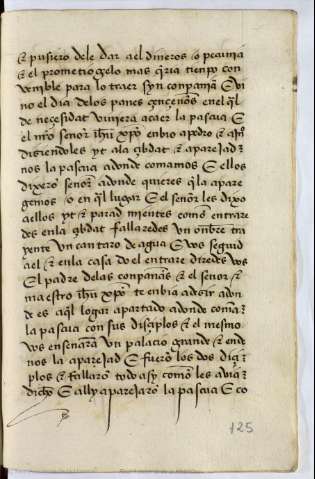 & pusiero dele dar a el dineros o pecunia
& el prometiogelo mas q̃ria tiempo con
venible para lo traer syn conpanãa E vi
no el dia delos panes çençeños en el q̃l
de neçesidat viniera acaer la pascua E
el nr̃o señor ihũ xp̃o enbio a pedro & a
disiendoles yt ala çibdat & aparejad
nos la pascua adonde comamos E ellos
dixerõ señor adonde quieres q̃ la apare
gemos o en q̃l lugar E el señor les dixo
a ellos yt & parad mientes como entrare
des enla çibdat fallaredes vn onbre tra
yente vn cantaro de agua E vos seguid
a el & enla casa do el entrare diredes vos
El padre delas conpanãs & el señor &
maestro ihũ xp̃o te enbia adesir adon
de es aq̃l logar apartado adonde coma
la pascua con sus disçiplos & el mesmo
vos enseñara vn palacio grande & ende
nos la aparejad E fuerõ los dos diçi
plos & fallarõ todo asy como les avia
dicho E ally aparejarõ la pascua E co
125